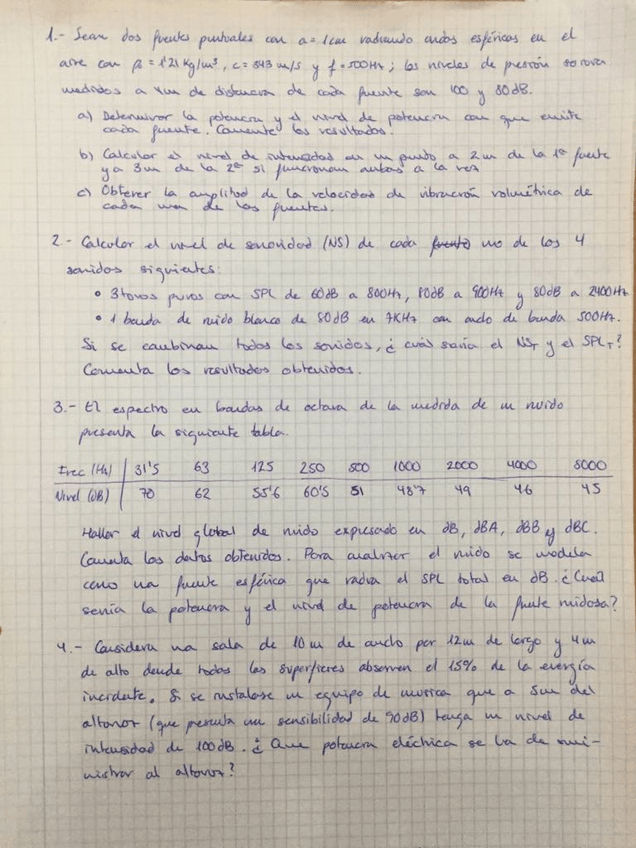 1.- Sean dos fuentes puntuales con a = 1 cm radiando ondas esféricas en el
aire con ρ₀ = 1'21 Kg/m³, c = 343 m/s y f = 500Hz; los niveles de presión sonora
medidos a 4m de distancia de cada fuente son 100 y 80 dB.
a) Determinar la potencia y el nivel de potencia con que emite
cada fuente. Comente los resultados.
b) Calcular el nivel de intensidad en un punto a 2m de la 1ª fuente
y a 3m de la 2ª si funcionan ambas a la vez
c) Obtener la amplitud de la velocidad de vibración volumétrica de
cada una de las fuentes.
2.- Calcular el nivel de sonoridad (NS) de cada uno de los 4
sonidos siguientes:
• 3 tonos puros con SPL de 60dB a 800Hz, 80dB a 900Hz y 80dB a 2400Hz
• 1 banda de ruido blanco de 80dB en 7KHz con ancho de banda 500Hz.
Si se combinan todos los sonidos, ¿cuál sería el NS_T y el SPL_T?
Comenta los resultados obtenidos.
3.- El espectro en bandas de octava de la medida de un ruido
presenta la siguiente tabla.
Frec (Hz) 31'5 63 125 250 500 1000 2000 4000 8000
Nivel (dB) 70 62 55'6 60'5 51 48'7 49 46 45
Hallar el nivel global de ruido expresado en dB, dBA, dBB y dBC.
Comenta los datos obtenidos. Para analizar el ruido se modela
como una fuente esférica que radia el SPL total en dB. ¿Cuál
sería la potencia y el nivel de potencia de la fuente ruidosa?
4.- Considera una sala de 10 m de ancho por 12m de largo y 4m
de alto donde todas las superficies absorven el 15% de la energía
incidente. Si se instalase un equipo de musica que a 5m del
altavoz (que presenta una sensibilidad de 90 dB) tenga un nivel de
intensidad de 100 dB. ¿Que potencia eléctrica se ha de sumi-
nistrar al altavoz?